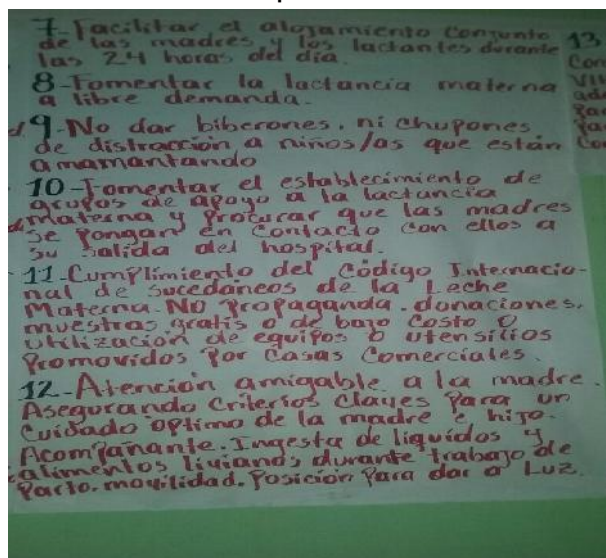 7-Facilitar el alojamiento conjunto
de las madres y los lactantes durante
las 24 horas del día.
8-Fomentar la lactancia materna
a libre demanda.
9-No dar biberones, ni chupones
de distracción a niños/as que están
amamantando
10-Fomentar el establecimiento de
grupos de apoyo a la lactancia
materna y procurar que las madres
se pongan en contacto con ellos a
su salida del hospital.
11-Cumplimiento del Código Internacio-
nal de sucedáneos de la Leche
Materna. No propaganda, donaciones,
muestras gratis o de bajo costo o
utilización de equipos o utensilios
promovidos por Casas Comerciales.
12-Atención amigable a la madre.
Asegurando Criterios Claves para un
Cuidado óptimo de la madre e hijo.
Acompañante. Ingesta de liquidos y
alimentos livianos durante trabajo de
Parto. movilidad. Posición Para dar a Luz.
13